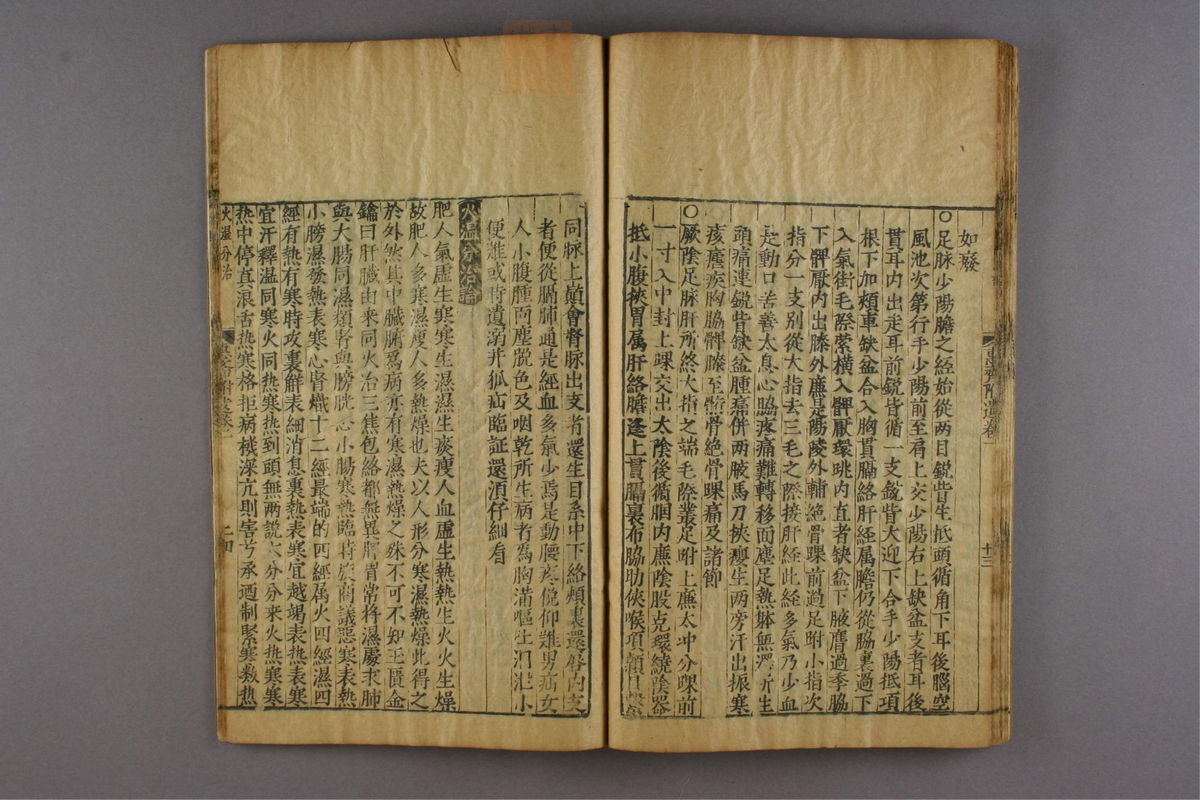 如廢
〇足脉少陽膽之經始從两目銳眥生抵頭循角下耳後腦空
風池次第行手少陽前至肩上交少陽右上缺盆支者耳後
貫耳内出走耳前銳眥循一支銳眥大迎下合手少陽抵項
根下加頰車缺盆合入胸貫膈絡肝経属膽仍從脇裏過下
入氣街毛際縈橫入髀厭環跳内直者缺盆下腋膺過季脇
下髀厭内出膝外廉是陽陵外輔絶骨踝前過足跗小指次
指分一支别從大指去三毛之際接肝経此経多氣乃少血
是動口苦善太息心脇疼痛難轉移面塵足熱體無澤所生
頭痛連銳眥缺盆腫痛併两腋馬刀挾癭生两旁汗出振寒
痎瘧疾胸脇髀膝至胻骨絶骨踝痛及諸節
〇厥陰足脉肝所終大指之端毛際叢足跗上廉太冲分踝前
一寸入中封上踝交出太陰後循膕内廉陰股克環繞陰器
抵小腹挾胃属肝絡膽逢上貫膈裏布脇肋俠喉項顙目
同脉上巔會督脉出支者還生目系中下絡頰裏還唇内支
者便從膈肺通是經血多氣少焉是動腰疼俛仰難男疝女
人小腹腫面塵脫色及咽乾所生病者為胸滿嘔吐洞泄小
便難或時遺溺并狐疝臨証還湏仔細看
火濕分治論
肥人氣虛生寒寒生濕濕生痰瘦人血虛生熱熱生火火生燥
故肥人多寒濕瘦人多熱燥也夫以人形分寒濕熱燥此得之
於外然其中臓腑為病亦有寒濕熱燥之殊不可不知玉匱金
鑰曰肝臓由来同火治三焦包絡都無異脾胃常将濕處求肺
與大腸同濕類腎與膀胱心小腸寒熱臨時旋商議惡寒表熱
小膀濕發熱表寒心腎熾十二經最端的四經属火四經濕四
經有熱有寒時攻裏觧表細消息裏熱表寒宜越竭表熱表寒
宜汗釋温同寒火同熱寒熱到頭無两説六分分来火熱寒寒
熱中停真浪舌熱寒格拒病機深亢則害兮承迺制緊寒数熱
火濕分治
十三
二四